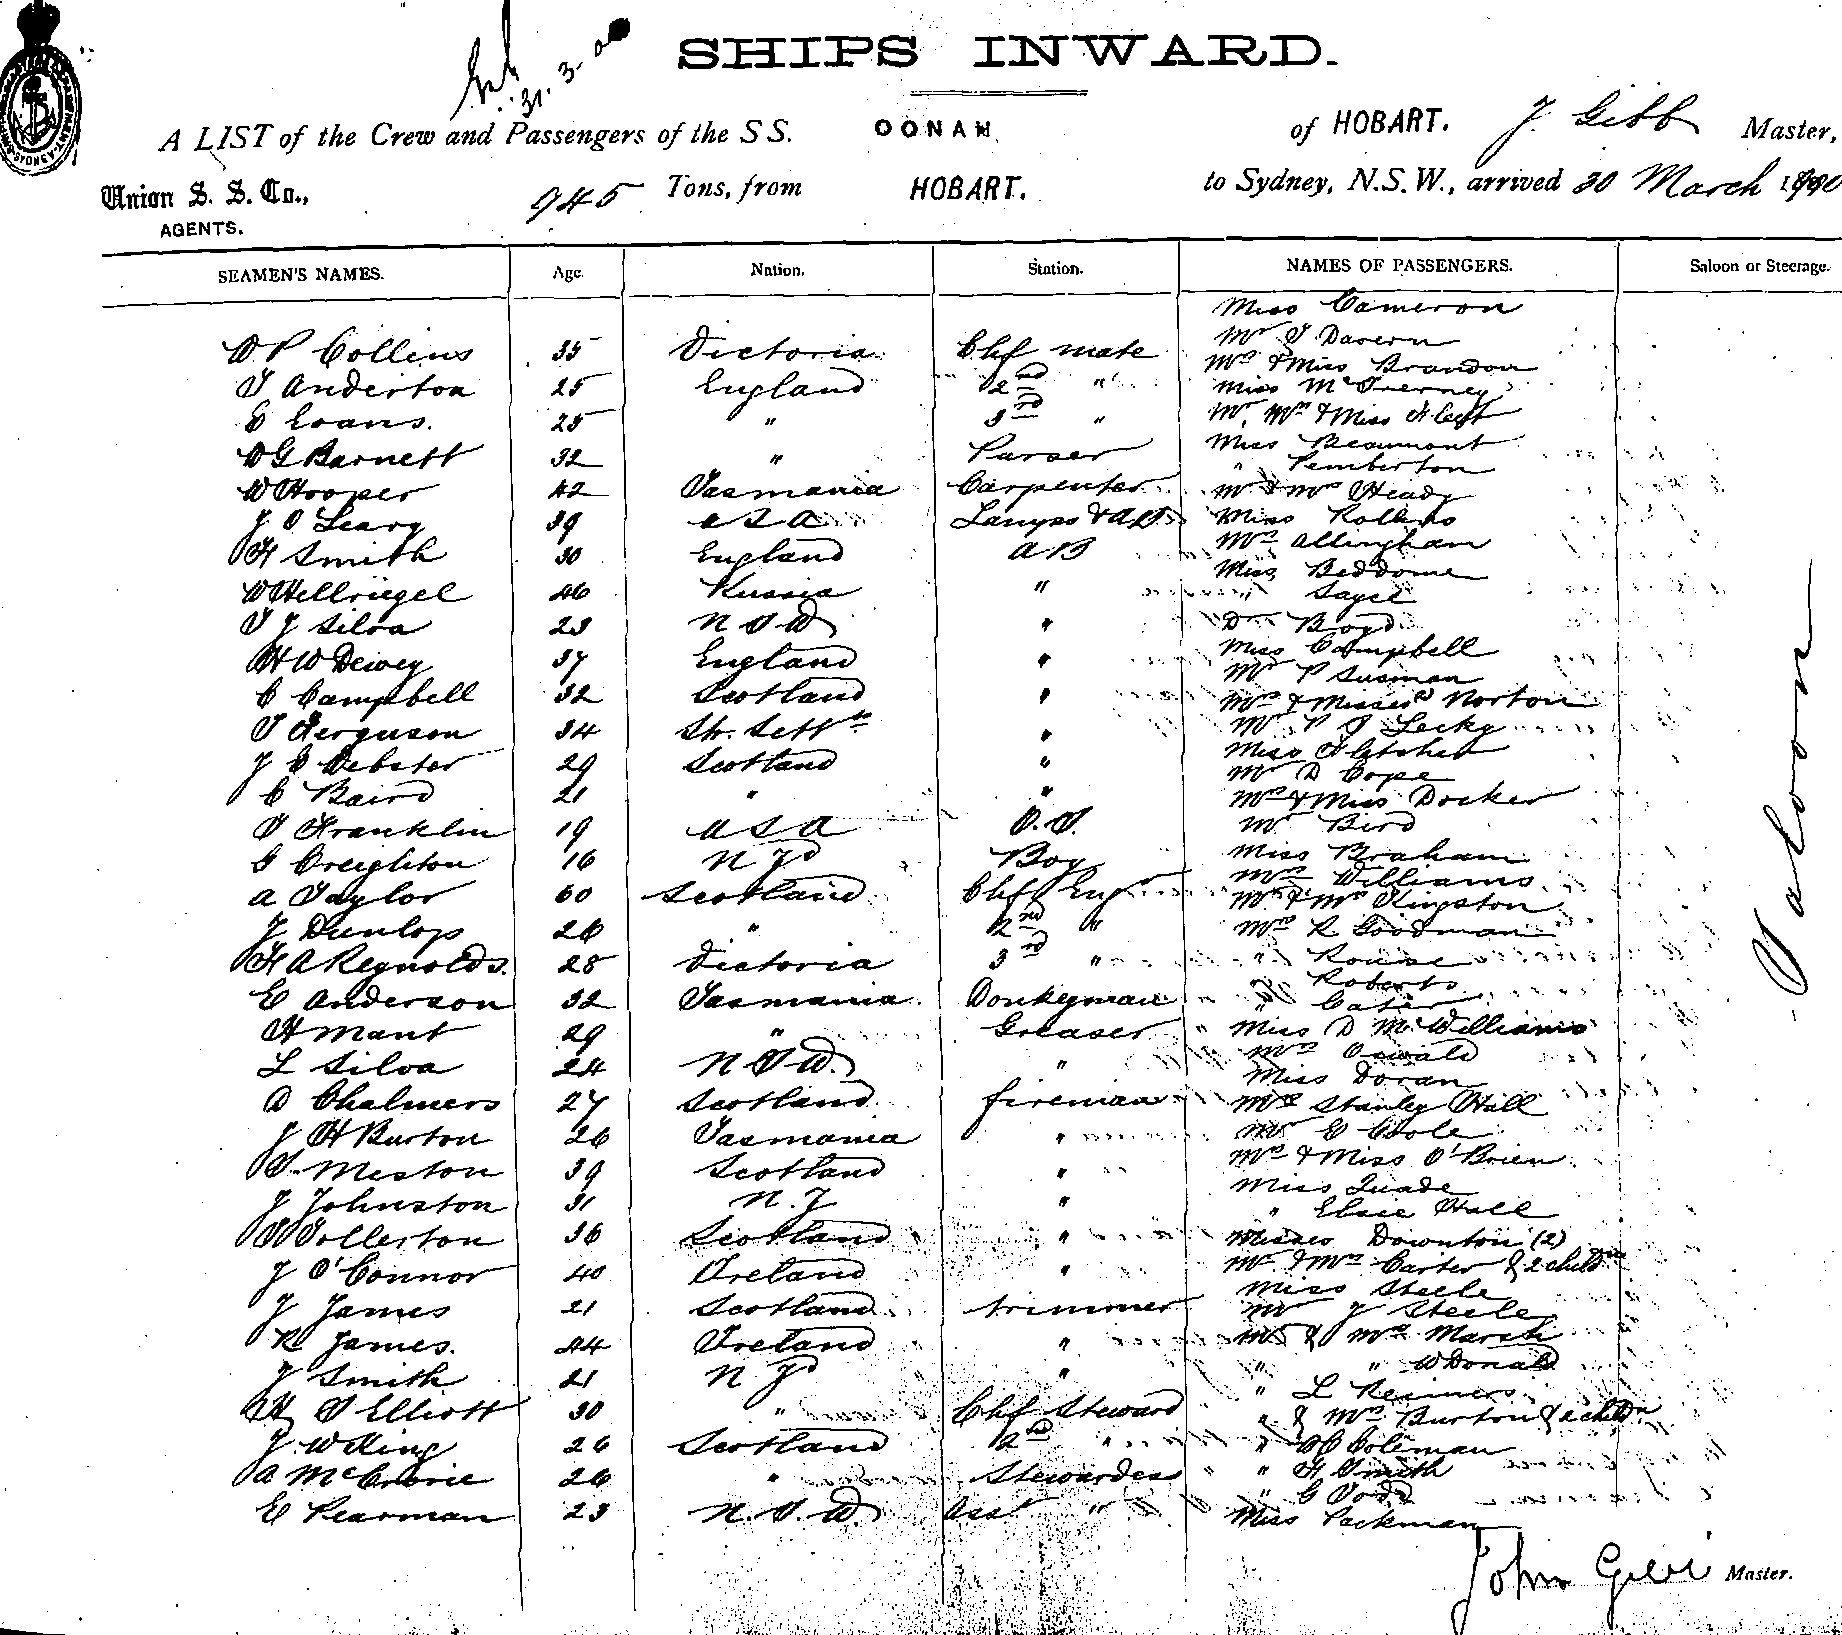 SHIPS INWARD.
31.3.00
A LIST of the Crew and Passengers of the SS. OONAH of HOBART. J. Gibb Master,
Union S. S. Co., 945 Tons, from HOBART. to Sydney, N.S.W., arrived 30 March 1900
AGENTS.
SEAMEN'S NAMES. Age. Nation. Station. NAMES OF PASSENGERS. Saloon or Steerage.
Miss Cameron
W P Collins 35 Victoria Chf mate Mr T Davern
Mrs & Miss Brandon
T Anderton 25 England 2nd " Miss McTierney
E Evans. 25 " 3rd " Mr, Mrs & Miss
W G Barnett 32 " Purser Miss Beaumont
" Pemberton
W Hooper 42 Tasmania Carpenter Mr & Mrs Heady
J O'Leary 39 U S A Lamps & AB Miss Rollins
H Smith 30 England A B Mrs Allingham
Miss Beddome
W Hellriegel 46 Russia " " Sayce
T J Silva 23 N S W " Dr Boyd
H W Dewey 37 England " Miss Campbell
Mr P Susman
C Campbell 32 Scotland " Mrs & Misses Norton
T Ferguson 34 Str. Settts " Mr P J Lecky
J C Webster 29 Scotland " Miss Fletcher
Mr D Cope
C Baird 21 " " Mrs & Miss Docker
T Franklin 19 U S A O.S. Mr Bird
G Creighton 16 N Zd Boy Miss Braham
Mrs Williams
A Taylor 60 Scotland Chf Engr Mr & Mrs Kingston
J Dunlop 26 " 2nd " Mrs R Goodman
H A Reynolds. 28 Victoria 3rd " " Rouse
" Roberts
E Anderson 32 Tasmania Donkeyman " Cater
H Mant 29 " Greaser Miss D McWilliams
L Silva 24 N S W. " Mrs Oswald
Miss Doran
D Chalmers 27 Scotland fireman Mrs Stanley Hall
J H Burton 26 Tasmania " Mr E Cole
S. Meston 39 Scotland " Mrs & Miss O'Brien
J Johnston 31 N. Z " Miss Quade
" Elsie Hall
W Tollerton 36 Scotland " Misses Downton (2)
J O'Connor 40 Ireland " Mr & Mrs Carter & 2 childrn
Miss Steele
J James 21 Scotland trimmer Mr J Steele
R James. 44 Ireland " Mr & Mrs Marsh
J Smith 21 N Zd " " " W Donald
" L Reimers
H T Elliott 30 " Chf Steward " & Mrs Burton & childn
J W King 26 Scotland 2nd " " Coleman
A McCrorie 26 " Stewardess " H Smith
" G Ford
E Pearman 23 N.S.W. Asst " Miss Packman
Saloon
John Gibb Master.